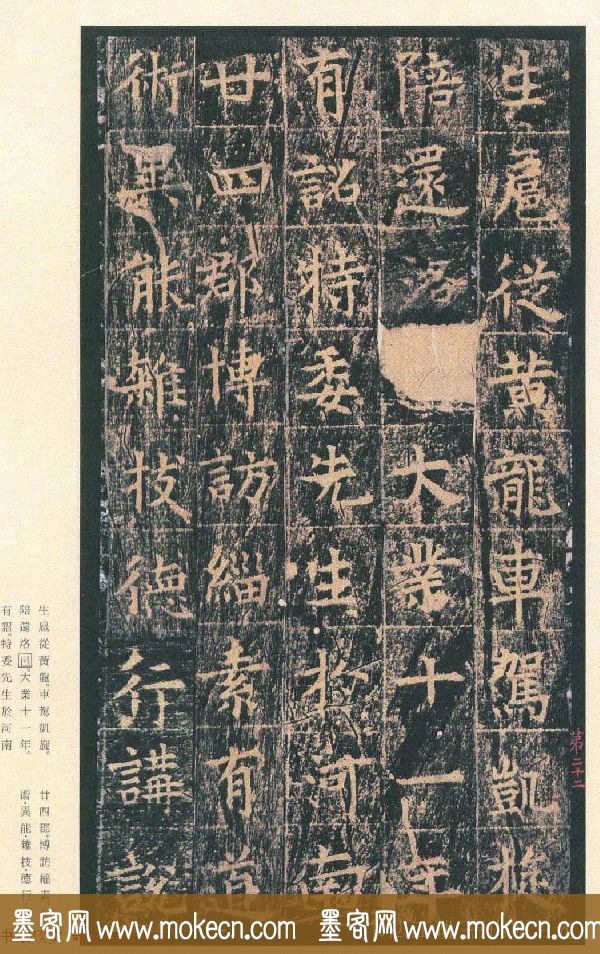 生扈從黃龍車駕凱旋
陪還洛大業十一年
有詔特委先生於河南
廿四郡博訪緇素有道
術異能雜技德行講說
第二十二
生扈從黃龍。車駕凱旋。
陪還洛司。大業十一年。
有詔。特委先生於河南
廿四郡。博訪緇素
術、異能、雜技、德行
墨客网 www.mokecn.com 墨客网 www.mokecn.com